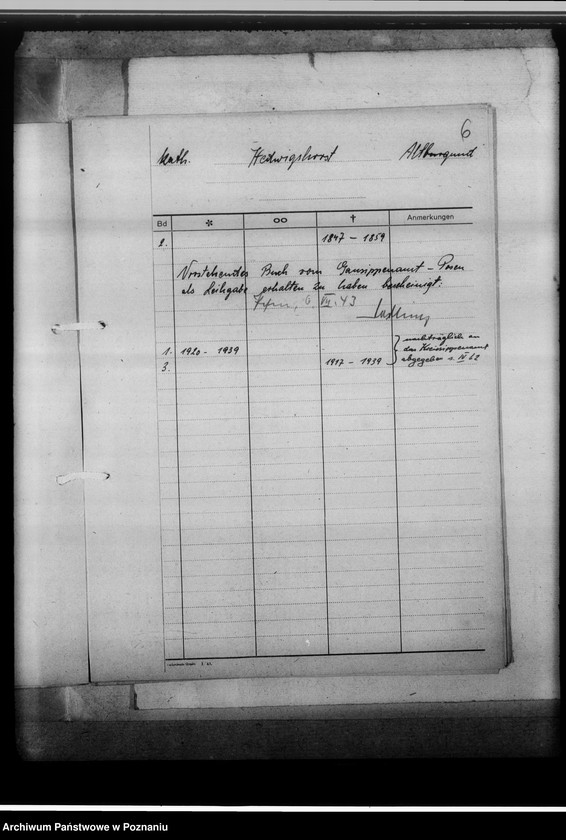 6
Kath. Hedwigshorst Altburgund
Bd * oo † Anmerkungen
2. 1847 - 1859
Vorstehendes Buch vom Gausippenamt - Posen
als Leihgabe erhalten zu haben bescheinigt:
6. VII. 43
1. 1920 - 1939
3. 1917 - 1939
nachträglich an
das Kreissippenamt
abgegeben
Archiwum Państwowe w Poznaniu